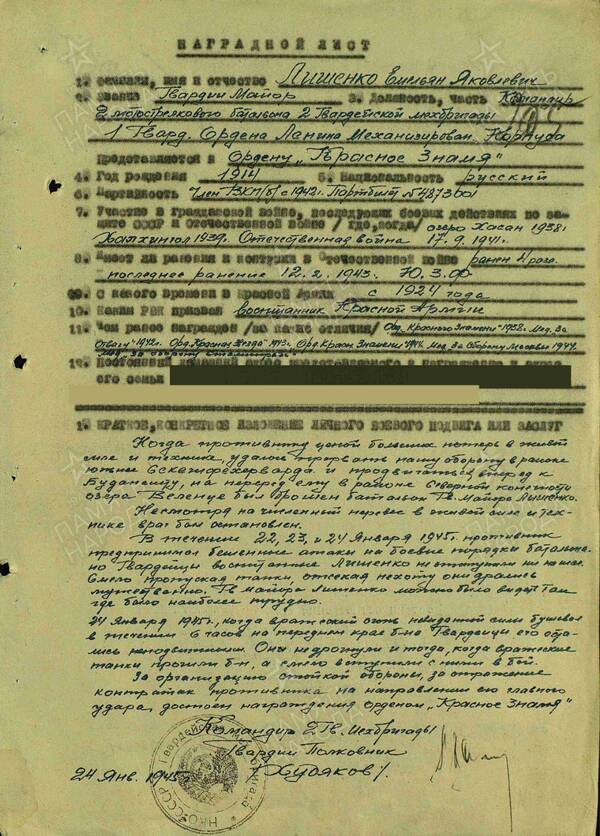 НАГРАДНОЙ ЛИСТ
1. Фамилия, имя и отчество Лященко Емельян Яковлевич
2. Звание Гвардии Майор 3. Должность, часть Командир
2 мотострелкового батальона 2 Гвардейской мехбригады
1 Гвард. Ордена Ленина Механизирован. Корпуса
Представляется к Ордену „Красное Знамя"
4. Год рождения 1914 5. Национальность русский
6. Партийность Член ВКП(б) с 1942г. Партбилет № 4873601
7. Участие в гражданской войне, последующих боевых действиях по за-
щите СССР и Отечественной войне /где, когда/ озеро Хасан 1938г
Халхингол 1939г. Отечественная война 17.9.1941г.
8. Имеет ли ранения и контузии в Отечественной войне ранен
последнее ранение 12.2.1943. Ю.З.Фр
9. С какого времени в Красной Армии с 1924 года
10. Каким РВК призван воспитанник Красной Армии
11. Чем ранее награжден /за какие отличия/ Орд. Красного Знамени 1938г. Мед. За
Отвагу" 1942г. Орд. Красн. Звезда 1943г. Орд. Красн. Знамени 1944г. Мед. За Оборону Москвы 1944г.
Мед. за оборону Сталинграда.
12. Постоянный домашний адрес представляемого к награждению и адрес
его семьи
1. КРАТКОЕ, КОНКРЕТНОЕ ИЗЛОЖЕНИЕ ЛИЧНОГО БОЕВОГО ПОДВИГА ИЛИ ЗАСЛУГ
Когда противнику ценой больших потерь в живой
силе и технике, удалось прорвать нашу оборону в районе
южнее Секешфехервара и продвигаться вперед к
Будапешту, на перерез ему в районе Северной конечности
озера Веленце был брошен батальон Гв. Майора Лященко.
Несмотря на численный перевес в живой силе и тех-
нике враг был остановлен.
В течении 22, 23, и 24 Января 1945г. противник
предпринимал бешенные атаки на боевые порядки батальона
но Гвардейцы воспитанные Лященко не отступили ни на шаг.
Смело пропуская танки, отсекая пехоту они дрались
мужественно. Гв. Майора Лященко можно было видеть там
где было наиболее трудно.
24 Января 1945г., когда вражеский огонь невиданной силы бушевал
в течении 6 часов на переднем крае б-на Гвардейцы его оста-
лись непоколебимыми. Они не дрогнули и тогда, когда вражеские
танки прошли б-н, а смело вступили с ними в бой.
За организацию стойкой обороны, за отражение
контратак противника на направлении его главного
удара, достоен награждения орденом „Красное Знамя"
Командир 2 Гв. Мехбригады
Гвардии Полковник
/Худяков/.
24 Янв. 1945г.